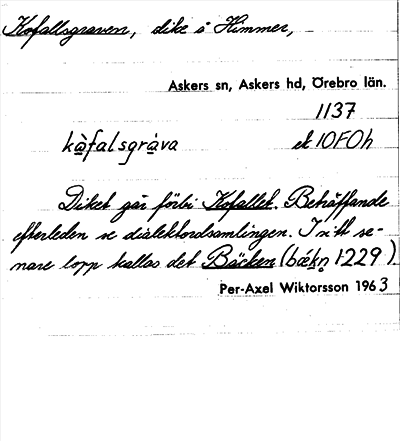 Kofallsgraven, dike å Himmer,
Askers sn, Askers hd, Örebro län.
1137
kàfalsgráva ek 10F0h
Diket går förbi Kofallet. Beträffande
efterleden se dialektordsamlingen. I sitt se-
nare lopp kallas det Bäcken (bǽkn̥ 1229).
Per-Axel Wiktorsson 1963